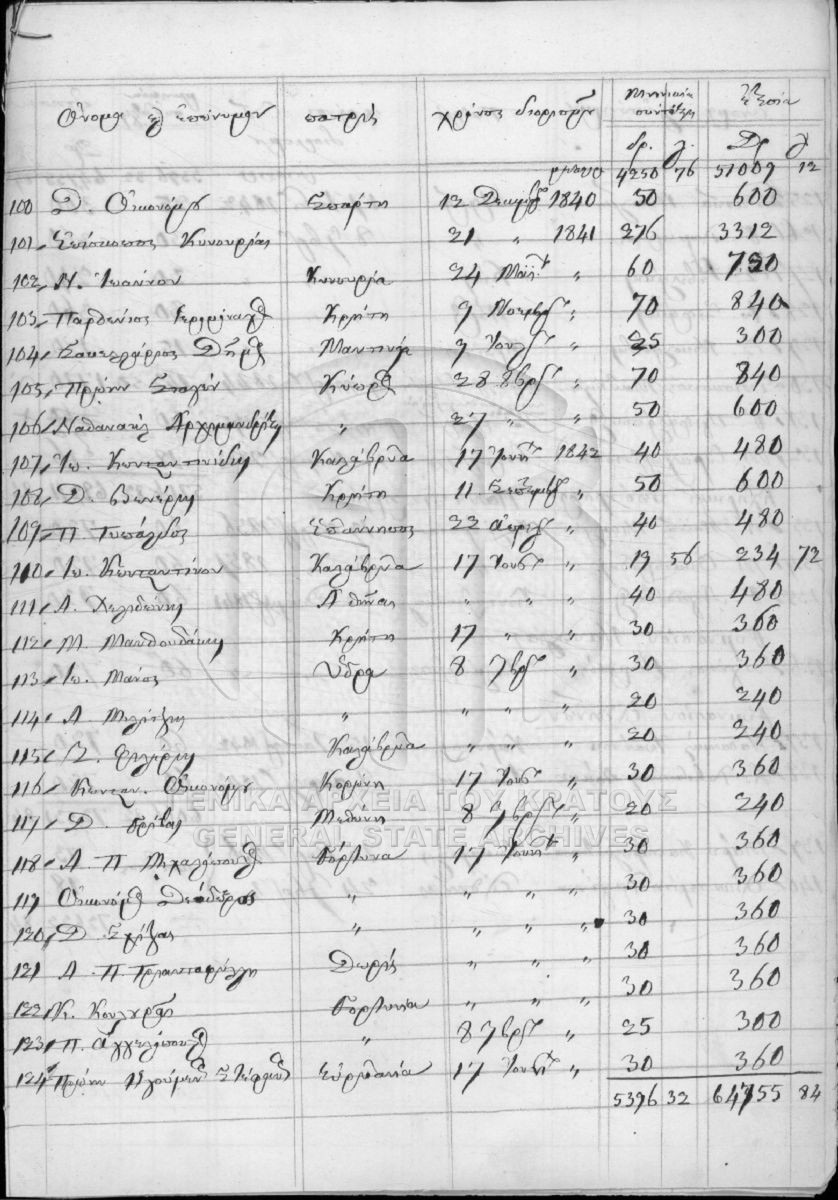 Ὄνομα καὶ Ἐπώνυμον πατρίς χρόνος διορισμοῦ Μηνιαία σύνταξις Ἐτησία
δρ. λ. Δρ λ
4250 76 51009 12
100 Δ. Οἰκονόμου Σπάρτη 12 Δεκεμβ 1840 50 600
101 Ἐπίσκοπος Κυνουρίας 21 " 1841 276 3312
102 Ν. Ἰωάννου Κυνουρία 24 " 60 720
103 Παρθένιος Κρήτη 7 Νοεμβ " 70 840
104 Σακελλάριος Μαντινεία 7 Ἰουλ " 25 300
105 Πρώην Κύπρου 28 8βρ " 70 840
106 Ναθαναὴλ Ἀρχιμανδρίτης " 27 " " 50 600
107 Ἰω. Κωνσταντινίδης Καλάβρυτα 17 Ἰουν 1842 40 480
108 Δ. Βενέρης Κρήτη 11 Σεπτεμβ " 50 600
109 Π. Τυπάλδος Ἑπτάννησος 22 Ἀπριλ " 40 480
110 Ἰω. Κωνσταντίνου Καλάβρυτα 17 " 19 56 234 72
111 Α. Χελιδώνης Ἀθῆναι " " " 40 480
112 Μ. Μανθουδάκης Κρήτη 17 " " 30 360
113 Ἰω. Μάνος Ὕδρα 8 7βρ " 30 360
114 Α. " " " " 20 240
115 Καλάβρυτα " " " 20 240
116 Κωνσταν. Οἰκονόμου Κορώνη 17 " 30 360
117 Δ. Γρίβας Μεθώνη 8 7βρ " 20 240
118 Α. Π. Μιχαλόπουλ Γόρτυνα 17 Ἰουν " 30 360
119 Οἰκονόμου Θεόδωρος " " " " 30 360
120 Δ. Σχίζας " " " " 30 360
121 Α. Π. Τριανταφύλλη Δωρίς " " " 30 360
122 Γορτυνία " " " 30 360
123 Π. Ἀγγελόπουλ " 8 7βρ " 25 300
124 Πρώην Ἡγούμεν Στέφαν Εὐρυτανία 17 Ἰουν " 30 360
5396 32 64755 84
ΓΕΝΙΚΑ ΑΡΧΕΙΑ ΤΟΥ ΚΡΑΤΟΥΣ
GENERAL STATE ARCHIVES